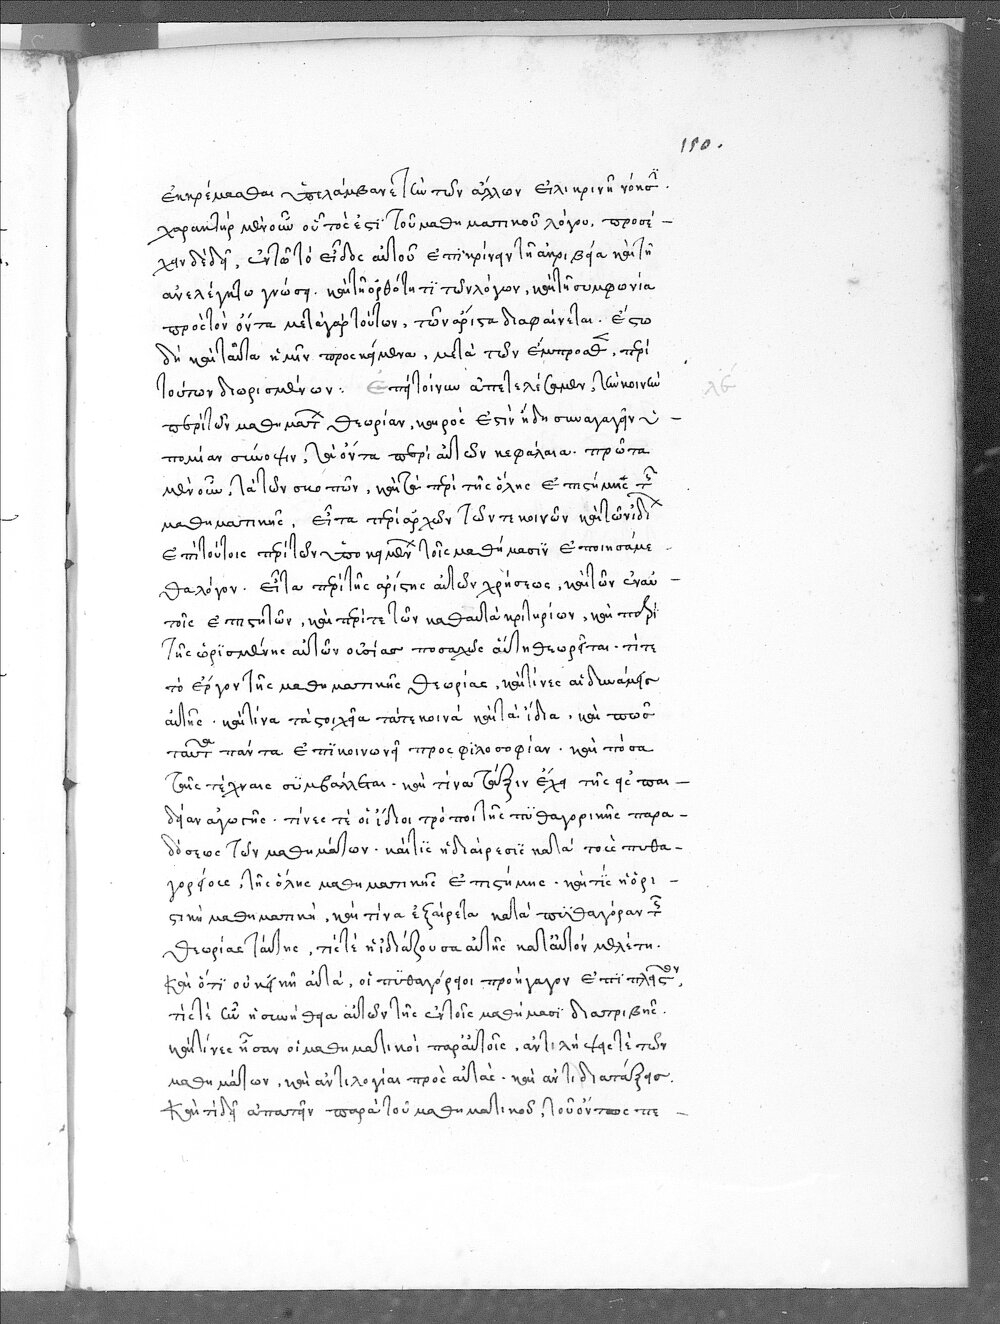 150.
ἐκκρέμασθαι ὑπελάμβανε τὼ τῶν ἄλλων εἰλικρινῆ νόησϊ.
χαρακτὴρ μὲν οὖν οὗτος ἐστϊ τοῦ μαθηματικοῦ λόγου. προσέ-
χειν δὲ δεῖ, ἐν τῶ τὸ εἶδος αὐτοῦ ἐπικρίνειν τῆ ἀκριβεία καὶ τῆ
ἀνελέγκτω γνώσει. καὶ τῆ ὀρθότητϊ τῶν λόγων, καὶ τῆ συμφωνία
πρὸς τὸν ὄντα μετὰ γὰρ τούτων, τῶν ἀρίστα διαφαίνεται. ἔστω
δὴ καὶ ταῦτα ἡμῖν προσκείμενα, μετὰ τῶν ἔμπροσθ, περὶ
τούτων διωρισμένων: Ἐπεὶ τοίνυν ἀπετελέσαμεν, τὼ κοινὼ
λε
περὶ τῶν μαθηματ θεωρίαν, καιρὸς ἐστὶν ἤδη συναγαγεῖν ἐ-
πομίαν σύνοψιν, τὰ ὄντα περὶ αὐτῶν κεφάλαια. πρῶτα
μὲν οὖν, τὰ τῶν σκοπῶν, καὶ τὰ περὶ τῆς ὅλης ἐπιστήμης τ
μαθηματικῆς, εἶτα περὶ ἀρχῶν τῶν τε κοινῶν καὶ τῶν ἰδι
ἐπὶ τούτοις περὶ τῶν ὑποκειμέν τοῖς μαθήμασϊν ἐποιησάμε-
θα λόγον. εἶτα περὶ τῆς ἀρίστης αὐτῶν χρήσεως, καὶ τῶν ἐν αὐ-
τοῖς ἐπιστητῶν, καὶ περί τε τῶν καθ αυτὰ κριτηρίων, καὶ περὶ
τῆς ὡρισμένης αὐτῶν οὐσίας ποσαχῶς αὕτη θεωρεῖται. τί τε
τὸ ἔργον τῆς μαθηματικῆς θεωρίας, καὶ τίνες αἱ δυνάμεις
αὐτῆς. καὶ τίνα τὰ στοιχεῖα τά τε κοινὰ καὶ τὰ ἴδια, καὶ πῶς
ταῦτ πάντα ἐπϊκοινωνεῖ προς φιλοσοφίαν. καὶ πόσα
ταῖς τέχναις σϋμβάλλεται. καὶ τίνα τάξιν ἔχει τῆς εἰς παι-
δείαν ἀγωγῆς. τίνες τὲ οἱ ἴδιοι τρόποι τῆς πϋθαγορικῆς παρα-
δόσεως τῶν μαθημάτων. καὶ τίς ἡ διαίρεσϊς κατὰ τοὺς πυθα-
γορείους, τῆς ὅλης μαθηματικῆς ἐπιστήμης. καὶ τίς ἡ ὁρι-
στικὴ μαθηματικὴ, καὶ τίνα ἐξαίρετα κατὰ πϋθαγόραν τ
θεωρίας ταύτης, τίς τὲ ἡ ἰδιάζουσα αὐτῆς κατ αὐτὸν μελέτη.
καὶ ὅτϊ οὐκ ἐκεῖνη αὐτὰ, οἱ πϋθαγόρειοι προήγαγον ἐπϊ πλεῖστον,
τίς τὲ ὢν ἡ συνήθεια αὐτῶν τῆς ἐν τοῖς μαθήμασϊ διατριβῆς.
καὶ τίνες ἦσαν οἱ μαθηματικοὶ παρ αὐτοῖς, ἀντιλήψεις τὲ τῶν
μαθημάτων, καὶ ἀντιλογίαι πρὸς αὐτάς. καὶ ἀντιδιατάξεις.
καὶ τί δεῖ ἀπαιτεῖν παρὰ τοῦ μαθηματικοῦ, τοῦ ὄντως πε-